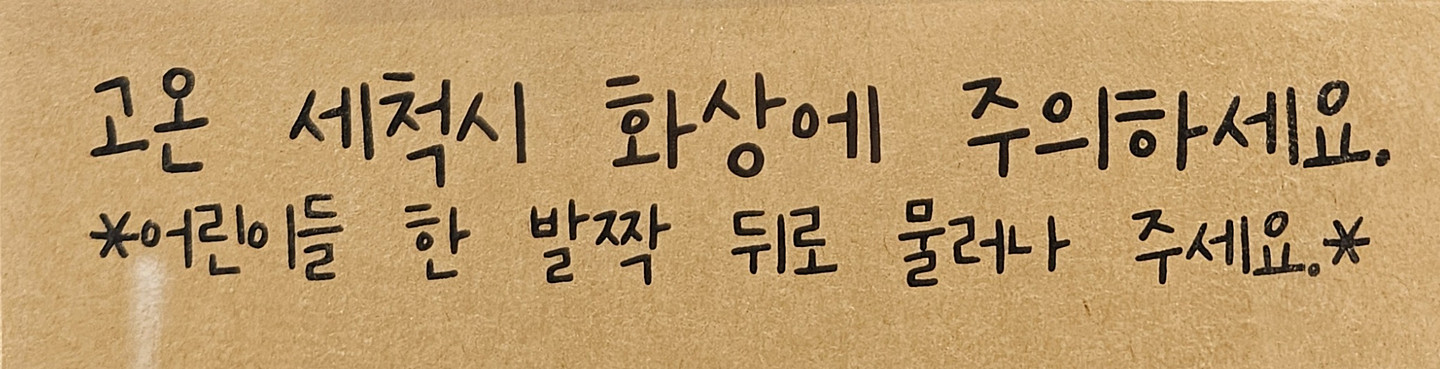 고온 세척시 화상에 주의하세요.
*어린이들 한 발짝 뒤로 물러나 주세요.*